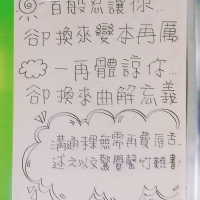 百般忍讓你...
卻換來變本再厲
一再體諒你...
卻換來曲解忘義
溝通裸無需再費唇舌
述之以文驚覺罄竹難書